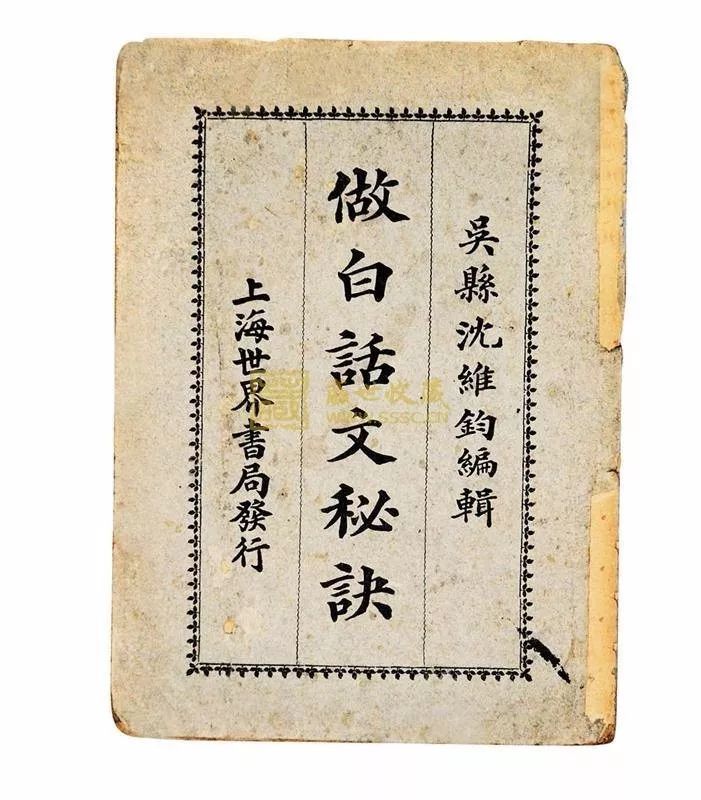 吳縣沈維鈞編輯
做白話文秘訣
上海世界書局發行
盛世收藏
WWW.SSSC.CN